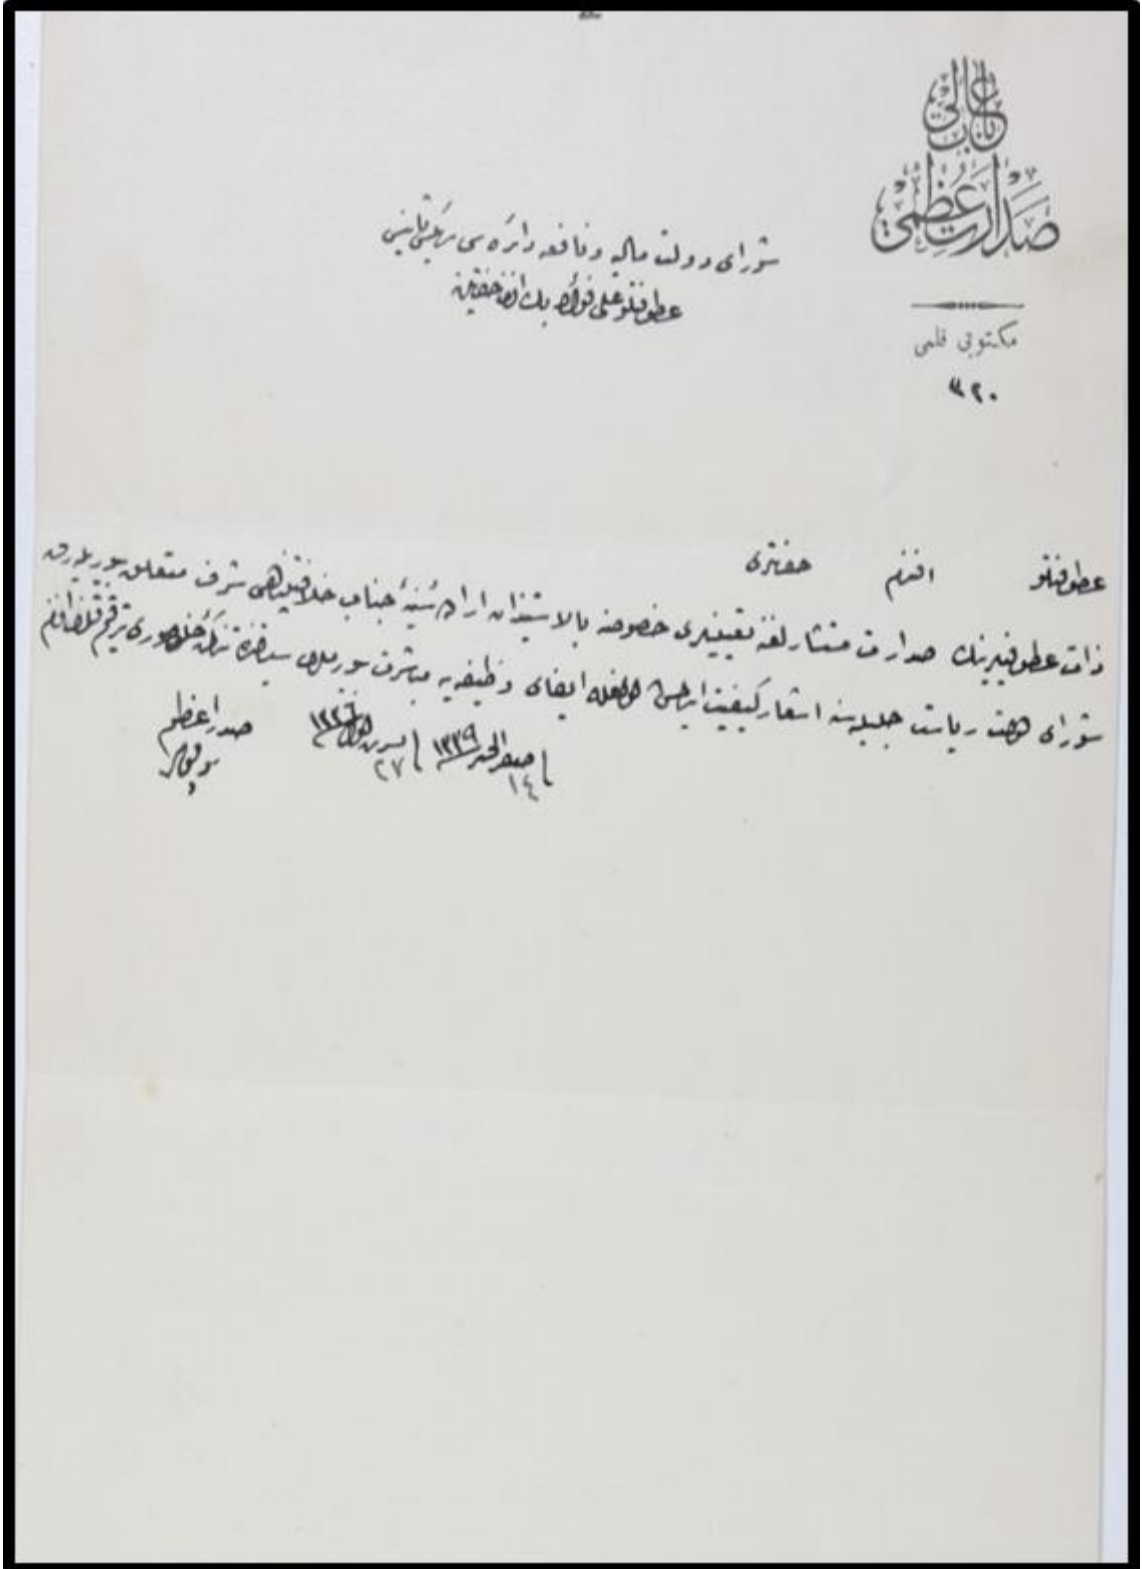 باب عالی
صدارت عظمی
مکتوبی قلمی
شورای دولت مالیه و نافعه دائره سی رئیس ثانیسی
عطوفتلو علی فؤاد بك افندی حضرتلرینه
عطوفتلو افندم حضرتلری
ذات عطوفیلرینك صدارت مستشارلغنه تعیینلری خصوصنه بالاستیذان اراده سنیه جناب خلافتپناهی شرف متعلق بیوریلەرق
شورای دولت ریاست جلیله سنه اشعار کیفیت ایفای وظیفه یه مباشرت بیورملری سیاقنده تذکره افندم
١٤ صفر الخیر ١٣٣٩ ٢٧ تشرین اول ١٣٣٦
صدر اعظم
توفیق